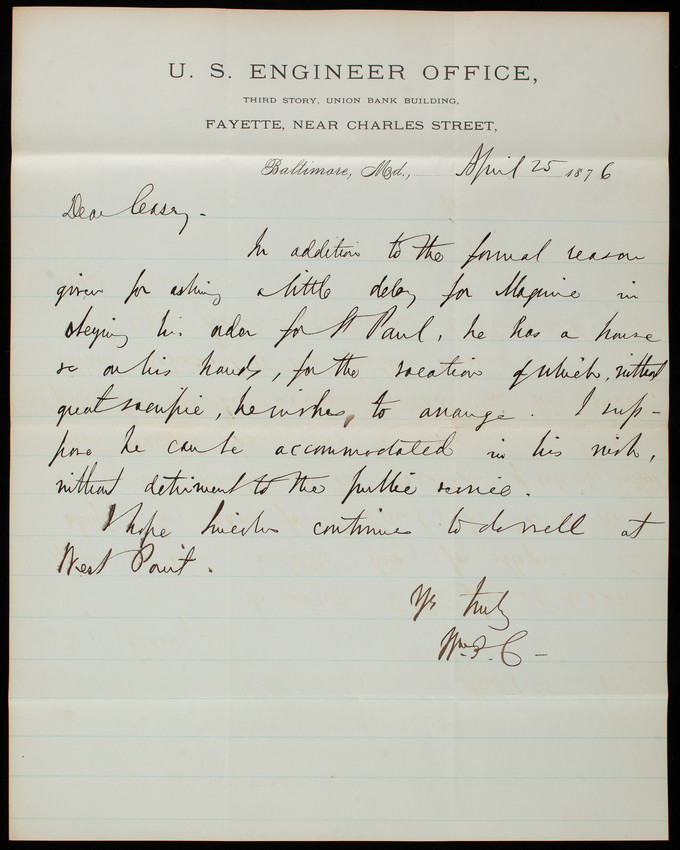 U. S. ENGINEER OFFICE,
THIRD STORY, UNION BANK BUILDING,
FAYETTE, NEAR CHARLES STREET,
Baltimore, Md., April 25 1876
Dear Casey.
In addition to the formal reason
given for asking a little delay for Maguire in
obeying his order for St Paul, he has a house
&c on his hands, for the vacation of which, without
great sacrifice, he wishes, to arrange. I sup-
pose he can be accommodated in his wish,
without detriment to the public service.
I hope Lincoln continues to do well at
West Point.
Yrs truly
Wm. P. C -